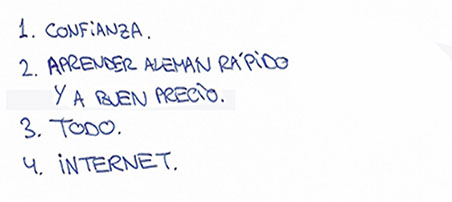 1. CONFIANZA.
2. APRENDER ALEMAN RÁPIDO
Y A BUEN PRECIO.
3. TODO.
4. INTERNET.